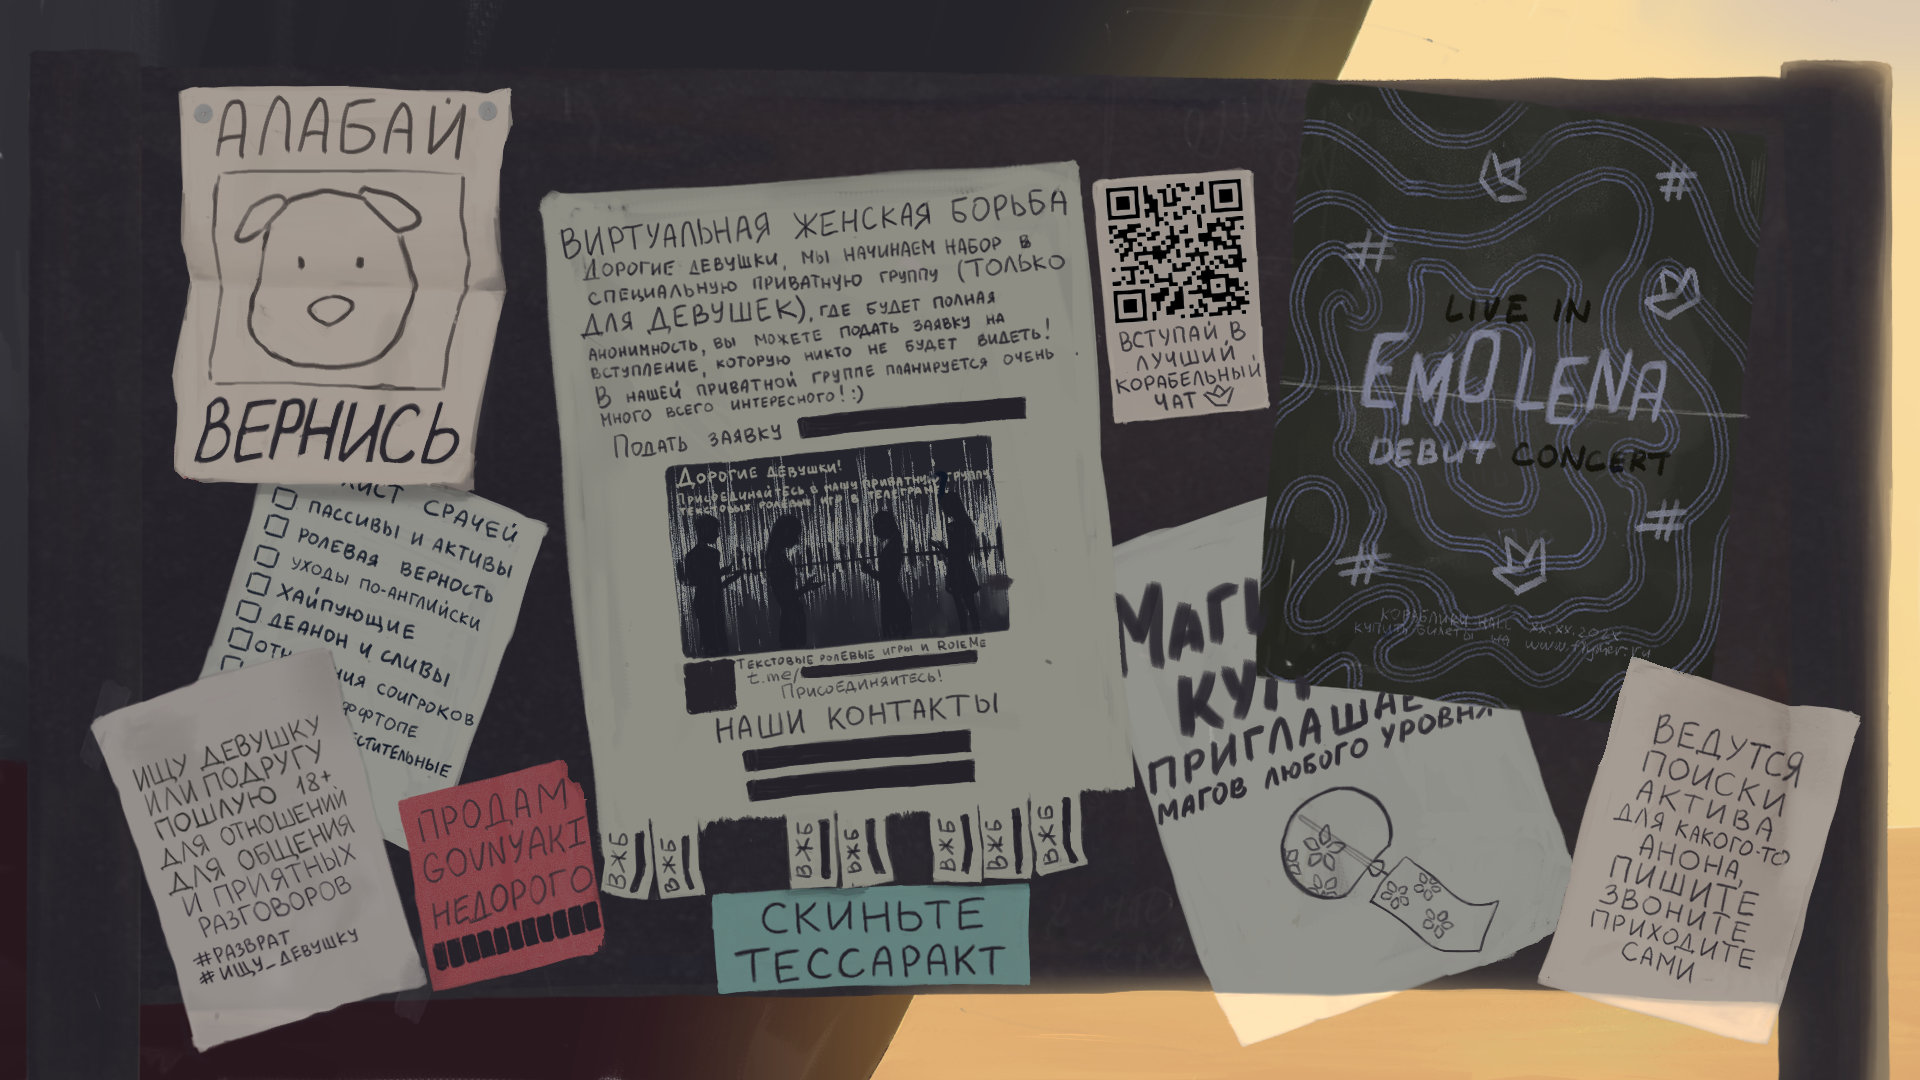 АЛАБАЙ
ВЕРНИСЬ
ЛИСТ СРАЧЕЙ
ПАССИВЫ И АКТИВЫ
РОЛЕВАЯ ВЕРНОСТЬ
УХОДЫ ПО-АНГЛИЙСКИ
ХАЙПУЮЩИЕ
ДЕАНОН И СЛИВЫ
СОИГРОКОВ
ИЩУ ДЕВУШКУ
ИЛИ ПОДРУГУ
ПОШЛУЮ 18+
ДЛЯ ОТНОШЕНИЙ
ДЛЯ ОБЩЕНИЯ
И ПРИЯТНЫХ
РАЗГОВОРОВ
#РАЗВРАТ
#ИЩУ_ДЕВУШКУ
ПРОДАМ
GOVNYAKI
НЕДОРОГО
ВИРТУАЛЬНАЯ ЖЕНСКАЯ БОРЬБА
ДОРОГИЕ ДЕВУШКИ, МЫ НАЧИНАЕМ НАБОР В
СПЕЦИАЛЬНУЮ ПРИВАТНУЮ ГРУППУ (ТОЛЬКО
ДЛЯ ДЕВУШЕК), ГДЕ БУДЕТ ПОЛНАЯ
АНОНИМНОСТЬ, ВЫ МОЖЕТЕ ПОДАТЬ ЗАЯВКУ НА
ВСТУПЛЕНИЕ, КОТОРУЮ НИКТО НЕ БУДЕТ ВИДЕТЬ!
В НАШЕЙ ПРИВАТНОЙ ГРУППЕ ПЛАНИРУЕТСЯ ОЧЕНЬ
МНОГО ВСЕГО ИНТЕРЕСНОГО! :)
ПОДАТЬ ЗАЯВКУ
ДОРОГИЕ ДЕВУШКИ!
ПРИСОЕДИНЯЙТЕСЬ В НАШУ ПРИВАТНУЮ ГРУППУ
ТЕКСТОВЫХ РОЛЕВЫХ ИГР В ТЕЛЕГРАМЕ
ТЕКСТОВЫЕ РОЛЕВЫЕ ИГРЫ И ROLEME
t.me/
ПРИСОЕДИНЯЙТЕСЬ!
НАШИ КОНТАКТЫ
ВЖБ
ВЖБ
ВЖБ
ВЖБ
ВЖБ
ВЖБ
ВЖБ
СКИНЬТЕ
ТЕССАРАКТ
ВСТУПАЙ В
ЛУЧШИЙ
КОРАБЕЛЬНЫЙ
ЧАТ
LIVE IN
EMO LENA
DEBUT CONCERT
КОРАБЛИКИ HALL XX.XX.202X
КУПИТЬ БИЛЕТЫ НА
МАГИ
КУП
ПРИГЛАШАЕ
МАГОВ ЛЮБОГО УРОВНЯ
ВЕДУТСЯ
ПОИСКИ
АКТИВА
ДЛЯ КАКОГО-ТО
АНОНА,
ПИШИТЕ
ЗВОНИТЕ
ПРИХОДИТЕ
САМИ